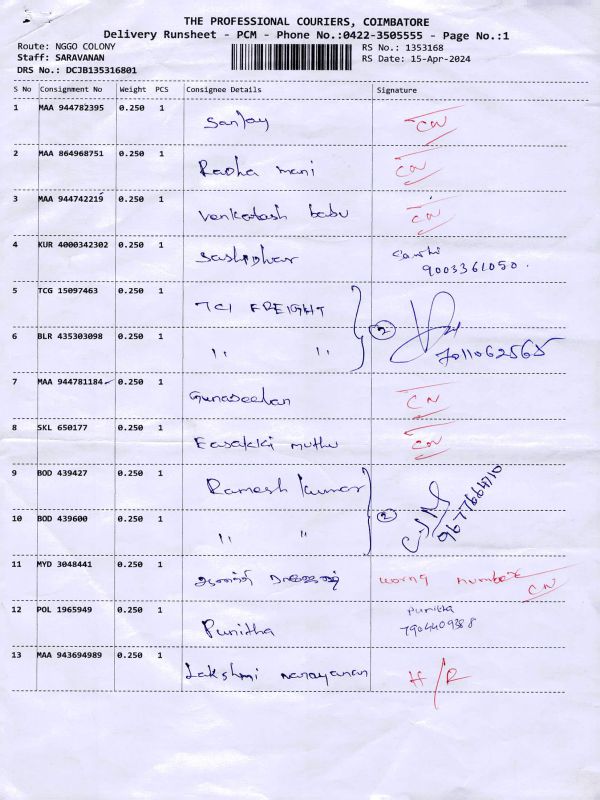 THE PROFESSIONAL COURIERS, COIMBATORE
Delivery Runsheet - PCM - Phone No.:0422-3505555 - Page No.:1
Route: NGGO COLONY RS No.: 1353168
Staff: SARAVANAN RS Date: 15-Apr-2024
DRS No.: DCJB135316801
S No Consignment No Weight PCS Consignee Details Signature
1 MAA 944782395 0.250 1 Sanjay CN
2 MAA 864968751 0.250 1 Radha mani CN
3 MAA 944742219 0.250 1 venkatash babu CN
4 KUR 4000342302 0.250 1 Sashidhar
9003361050.
5 TCG 15097463 0.250 1 TCI FREIGHT
2
7011062565
6 BLR 435303098 0.250 1 " "
7 MAA 944781184 0.250 1 Gunaseelan CN
8 SKL 650177 0.250 1 Easakki muthu CN
9 BOD 439427 0.250 1 Ramesh kumar
2
9677664710
10 BOD 439600 0.250 1 " "
11 MYD 3048441 0.250 1 worng number
CN
12 POL 1965949 0.250 1 Punitha Punitha
7904409388
13 MAA 943694989 0.250 1 Lakshmi narayanan H/R